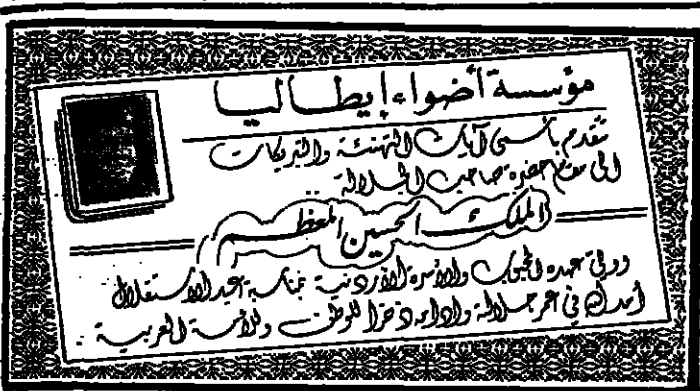 مؤسسة أضواء إيطاليا
تتقدم بأسمى آيات التهنئة والتبريكات
الى مقام حضرة صاحب الجلالة
الملك الحسين المعظم
وولي عهده المحبوب والأسرة الأردنية بمناسبة عيد الاستقلال
أمد الله في عمر جلالته وادامه ذخرا للوطن وللأمة العربية